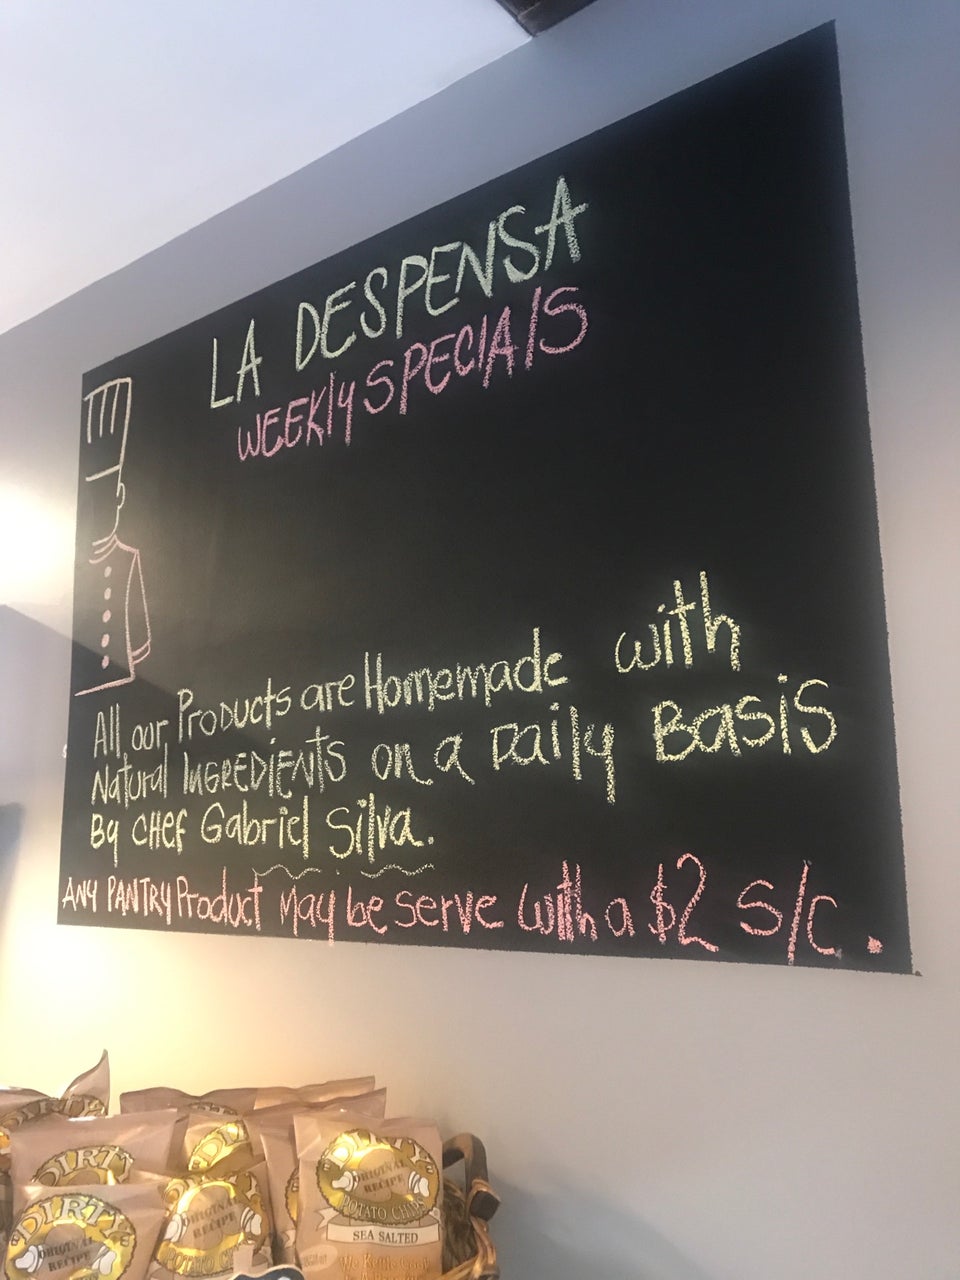 LA DESPENSA
WEEKly SPECIAlS
All our Products are Homemade with
Natural INGREDiENTS on a Daily Basis
By CHef Gabriel Silva.
ANY PANTRY Product May be serve with a $2 S/C.
DIRTY
DIRTY
ORIGINAL
RECIPE
DIRTY
ORIGINAL
RECIPE
POTATO CHIPS
DIRTY
ORIGINAL
RECIPE
POTATO CHIPS
SEA SALTED
We Kettle Cook